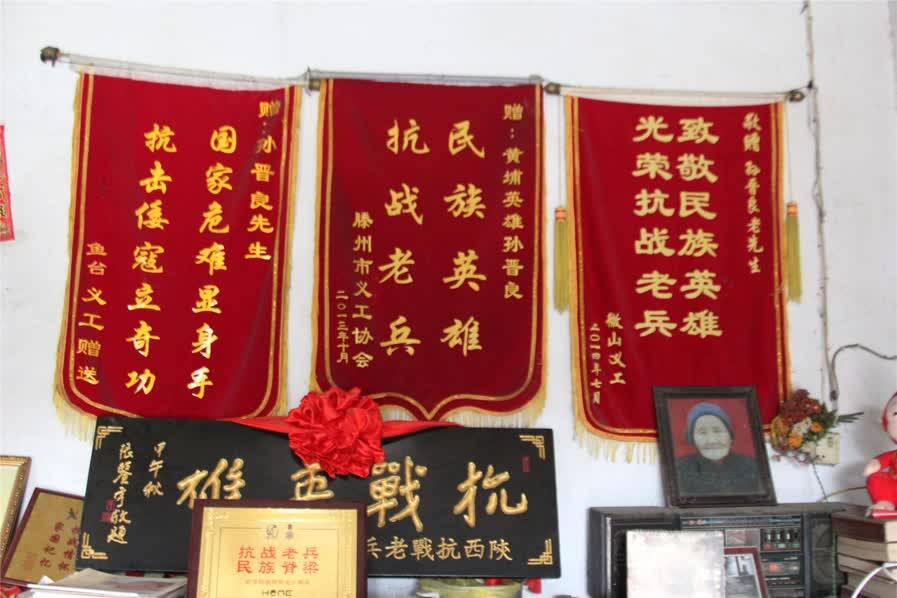 赠：孙晋良先生
国家危难显身手
抗击倭寇立奇功
鱼台义工赠送
赠：黄埔英雄孙晋良
民族英雄
抗战老兵
滕州市义工协会
二〇一三年十月
敬赠 孙晋良老先生
致敬民族英雄
光荣抗战老兵
微山义工
二〇一四年七月
抗戰英雄
甲午秋
陝西抗戰老兵
抗战老兵
民族脊梁
HOPE